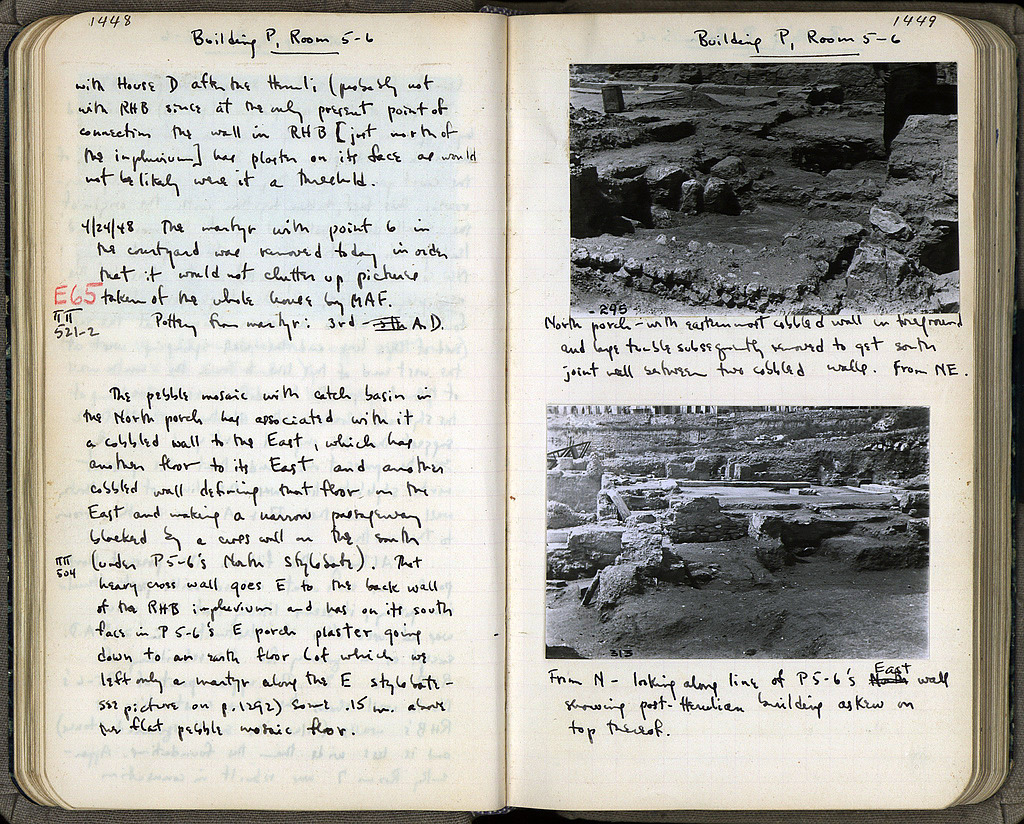 1448
Building P, Room 5-6
with House D after the Heruli (probably not
with RHB since at the only present point of
connection the wall in RHB [just north of
the impluvium] has plaster on its face as would
not be likely were it a threshold.
4/24/48 The martyr with point 6 in
the courtyard was removed today in order
that it would not clutter up pictures
E65 taken of the whole house by MAF.
ΠΠ
521-2
Pottery from martyr: 3rd A.D.
The pebble mosaic with catch basin in
the North porch has associated with it
a cobbled wall to the East, which has
another floor to its East and another
cobbled wall defining that floor on the
East and making a narrow passageway
blocked by a cross wall on the south
ΠΠ
504
(under P 5-6's North stylobate). That
heavy cross wall goes E to the back wall
of the RHB impluvium and has on its south
face in P 5-6's E porch plaster going
down to an earth floor (of which we
left only a martyr along the E stylobate -
see picture on p.1292) some .15 m. above
the flat pebble mosaic floor.
1449
Building P, Room 5-6
295
North porch - with easternmost cobbled wall in foreground
and large tumble subsequently removed to get south
joint wall between two cobbled walls. From NE.
313
From N - looking along line of P 5-6's East wall
showing post-Herulian building askew on
top thereof.